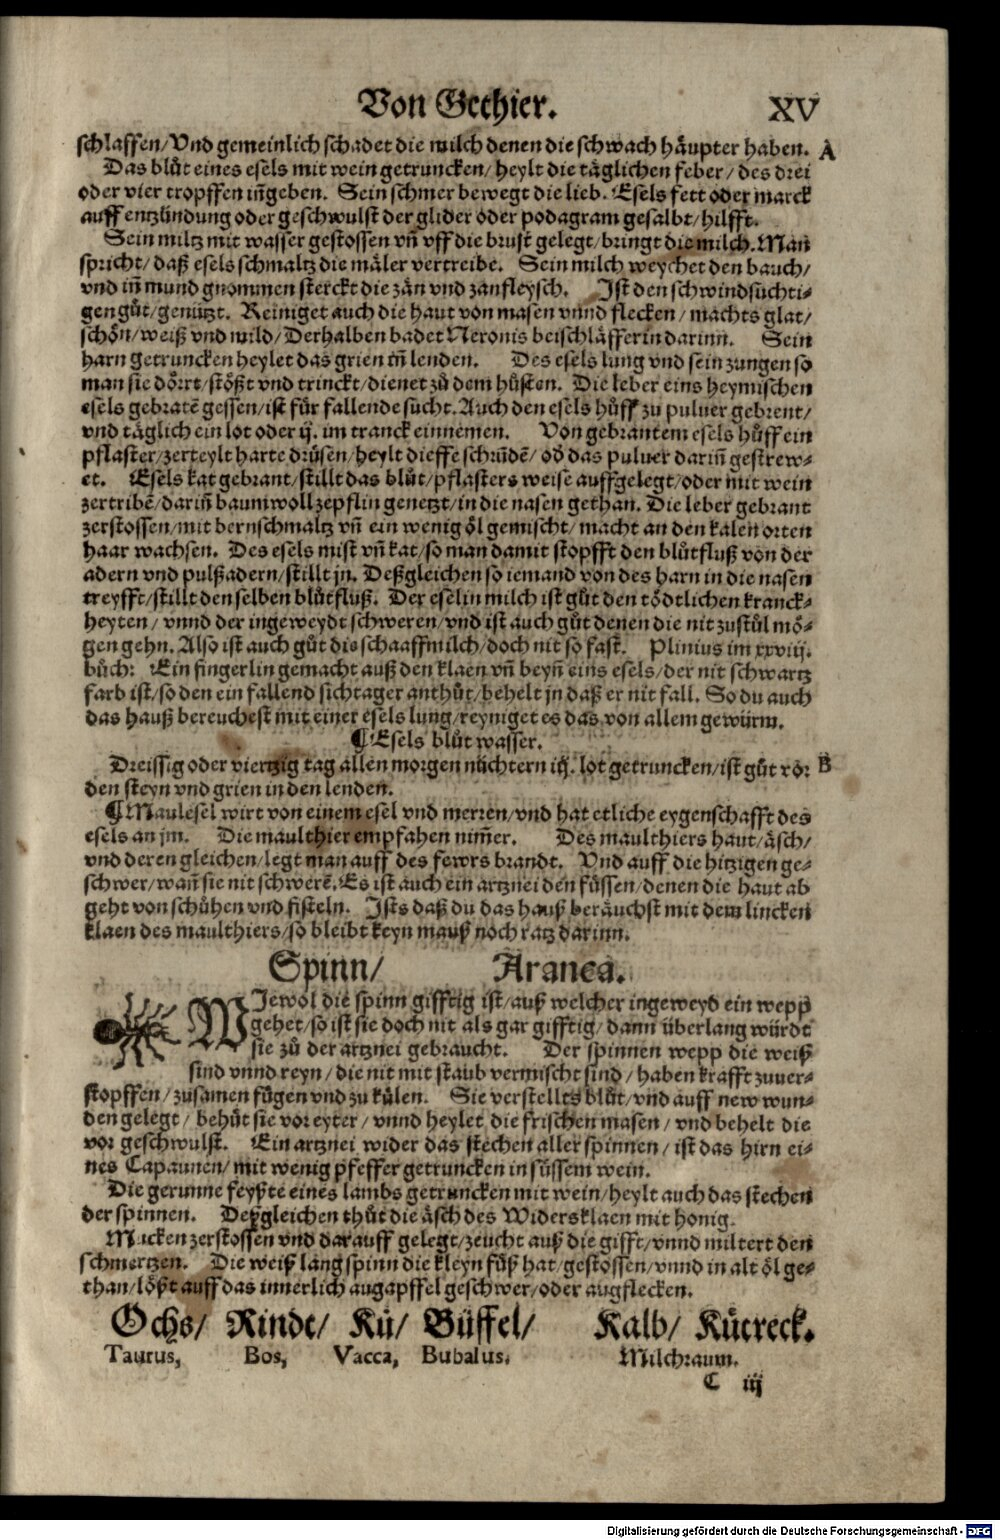 Von Gethier. XV
schlaffen/Vnd gemeinlich schadet die milch denen die schwach häupter haben. A
Das blůt eines esels mit wein getruncken/heylt die täglichen feber/des drei
oder vier tropffen iñgeben. Sein schmer bewegt die lieb. Esels fett oder marck
auff entzündung oder geschwulst der glider oder podagram gesalbt/hilfft.
Sein miltz mit wasser gestossen vñ vff die brust gelegt/bringt die milch. Man
spricht/daß esels schmaltz die mäler vertreibe. Sein milch weychet den bauch/
vnd iñ mund gnommen sterckt die zän vnd zanfleysch. Ist den schwindsüchti-
gen gůt/genützt. Reiniget auch die haut von masen vnnd flecken/machts glat/
schön/weiß vnd mild/Derhalben badet Neronis beischläfferin darinn. Sein
harn getruncken heylet das grien iñ lenden. Des esels lung vnd sein zungen so
man sie dörrt/stößt vnd trinckt/dienet zů dem hůsten. Die leber eins heymischen
esels gebratē gessen/ist für fallende sucht. Auch den esels hůff zu puluer gebrent/
vnd täglich ein lot oder ij. im tranck einnemen. Von gebrantem esels hůff ein
pflaster/zerteylt harte drüsen/heylt dieffe schrũdē/ob das puluer dariñ gestrew-
et. Esels kat gebrant/stillt das blůt/pflasters weise auffgelegt/oder mit wein
zertribē/dariñ baumwoll zepflin genetzt/in die nasen gethan. Die leber gebrant
zerstossen/mit bernschmaltz vñ ein wenig öl gemischt/macht an den kalen orten
haar wachsen. Des esels mist vñ kat/so man damit stopfft den blůtfluß von der
adern vnd pulßadern/stillt jn. Deßgleichen so iemand von des harn in die nasen
treyfft/stillt den selben blůtfluß. Der eselin milch ist gůt den tödtlichen kranck-
heyten/vnnd der ingeweydt schweren/vnd ist auch gůt denen die nit zustůl mö-
gen gehn. Also ist auch gůt die schaaffmilch/doch nit so fast. Plinius im xxviij.
bůch: Ein fingerlin gemacht auß den klaen vñ beyñ eins esels/der nit schwartz
farb ist/so den ein fallend sichtager anthůt/behelt jn daß er nit fall. So du auch
das hauß bereuchest mit einer esels lung/reyniget es das von allem gewürm.
¶Esels blůt wasser.
Dreissig oder viertzig tag allen morgen nüchtern iij. lot getruncken/ist gůt vor B
den steyn vnd grien in den lenden.
¶Maulesel wirt von einem esel vnd merren/vnd hat etliche eygenschafft des
esels an jm. Die maulthier empfahen nim̃er. Des maulthiers haut/äsch/
vnd deren gleichen/legt man auff des fewrs brandt. Vnd auff die hitzigen ge-
schwer/wañ sie nit schwerē. Es ist auch ein artznei den füssen/denen die haut ab
geht von schůhen vnd fisteln. Ists daß du das hauß beräuchst mit dem lincken
klaen des maulthiers/so bleibt keyn mauß noch ratz darinn.
Spinn/ Aranea.
WIewol die spinn gifftig ist/auß welcher ingeweyd ein wepp
gehet/so ist sie doch nit als gar gifftig/dann überlang würdt
sie zů der artznei gebraucht. Der spinnen wepp die weiß
sind vnnd reyn/die nit mit staub vermischt sind/haben krafft zuuer-
stopffen/zusamen fügen vnd zu külen. Sie verstellts blůt/vnd auff new wun-
den gelegt/behůt sie vor eyter/vnnd heylet die frischen masen/vnd behelt die
vor geschwulst. Ein artznei wider das stechen aller spinnen/ist das hirn ei-
nes Capaunen/mit wenig pfeffer getruncken in süssem wein.
Die gerunne feyßte eines lambs getruncken mit wein/heylt auch das stechen
der spinnen. Deßgleichen thůt die äsch des Widersklaen mit honig.
Mucken zerstossen vnd darauff gelegt/zeucht auß die gifft/vnnd miltert den
schmertzen. Die weiß lang spinn die kleyn füß hat/gestossen/vnnd in alt öl ge-
than/lößt auff das innerlich augapffel geschwer/oder augflecken.
Ochs/ Rindt/ Ků/ Büffel/ Kalb/ Kůtreck.
Taurus, Bos, Vacca, Bubalus. Milchraum.
C iij
Digitalisierung gefördert durch die Deutsche Forschungsgemeinschaft - DFG